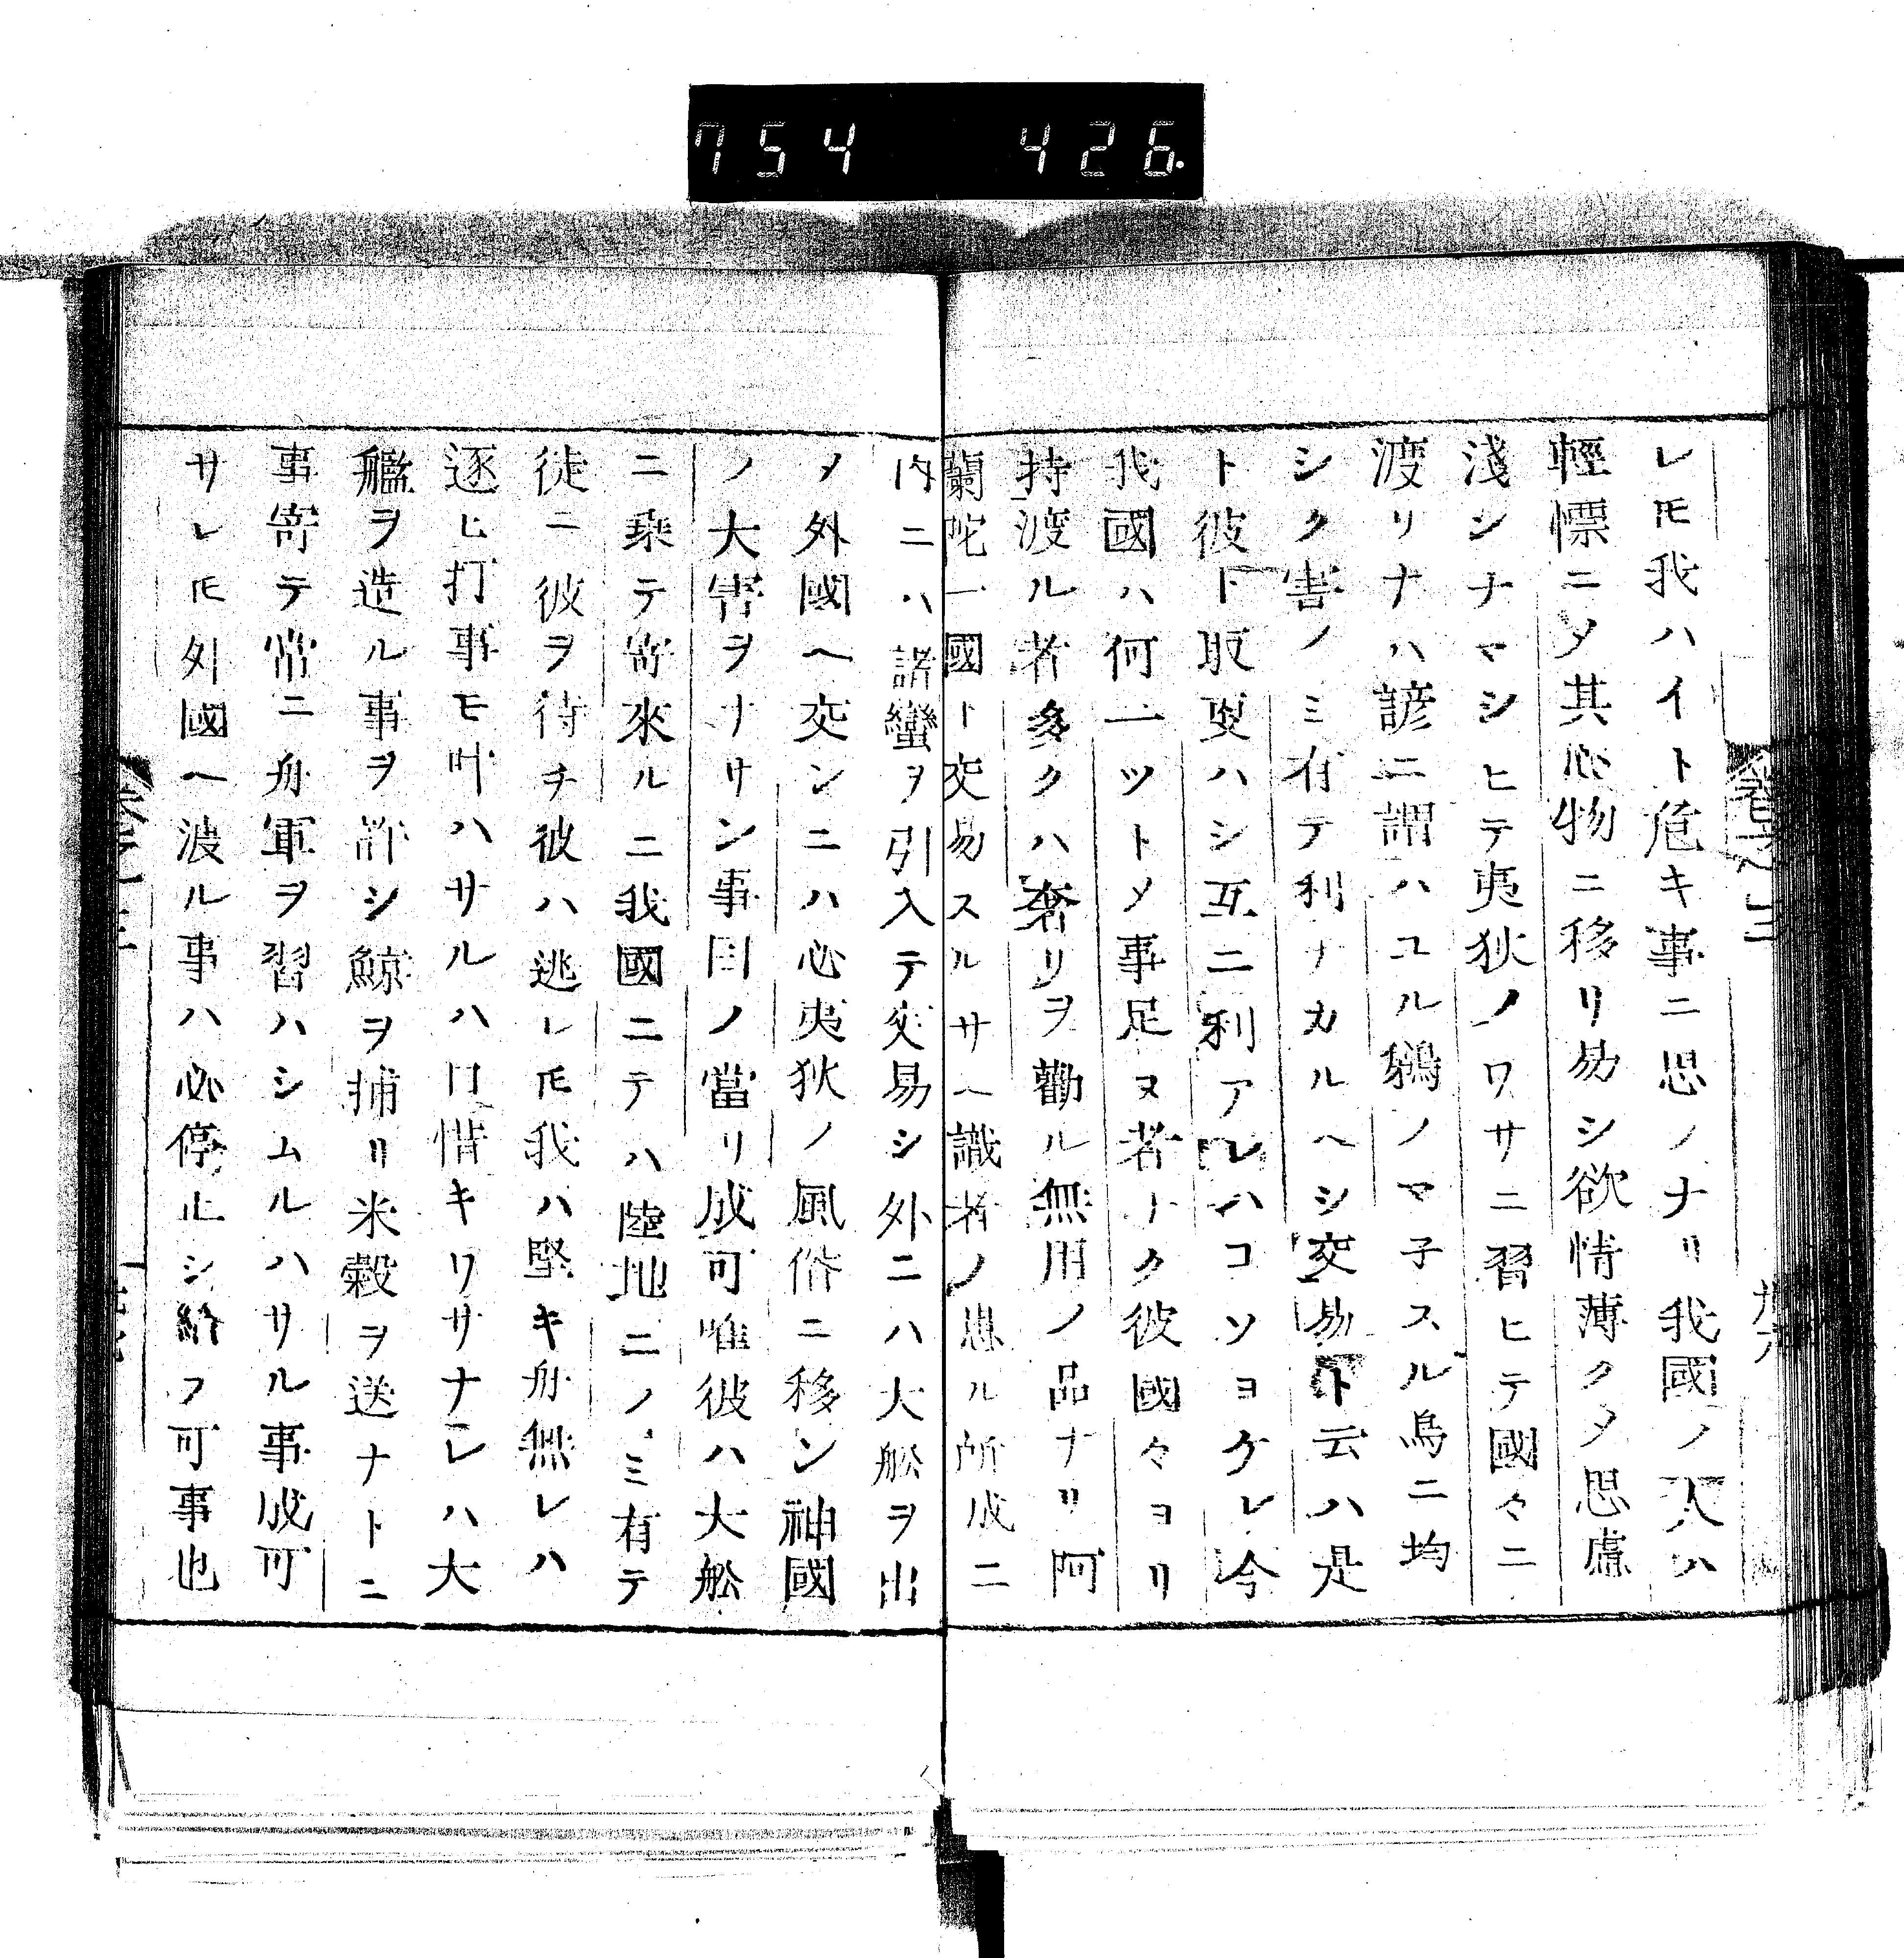 754 426.
レ𪜈我ハイト危キ事ニ思ノナリ我國ノ人ハ
輕慓ニ〆其心物ニ移リ易シ欲情薄ク〆思慮
淺シナマシヒテ夷狄ノワサニ習ヒテ國々ニ
渡リナハ諺ニ謂ハユル鵜ノマ子スル烏ニ均
シク害ノミ有テ利ナカルヘシ交易ト云ハ是
ト彼ト取更ハシ互ニ利アレハコソヨケレ今
我國ハ何一ツト〆事足ヌ者ナク彼國々ヨリ
持渡ル者多クハ奢リヲ勸ル無用ノ品ナリ阿
蘭陀一國ト交易スルサヘ識者ノ患ル所成ニ
内ニハ諸蠻ヲ引入テ交易シ外ニハ大舩ヲ出
〆外國ヘ交ンニハ必夷狄ノ風俗ニ移ン神國
ノ大害ヲナサン事目ノ當リ成可唯彼ハ大舩
ニ乘テ寄來ルニ我國ニテハ陸地ニノミ有テ
徒ニ彼ヲ待チ彼ハ逃レ𪜈我ハ堅キ舟無レハ
逐ヒ打事モ叶ハサルハ口惜キワサナレハ大
艦ヲ造ル事ヲ許シ鯨ヲ捕リ米穀ヲ送ナトニ
事寄テ常ニ舟軍ヲ習ハシムルハサル事成可
サレ𪜈外國ヘ渡ル事ハ必停止シ給フ可事也